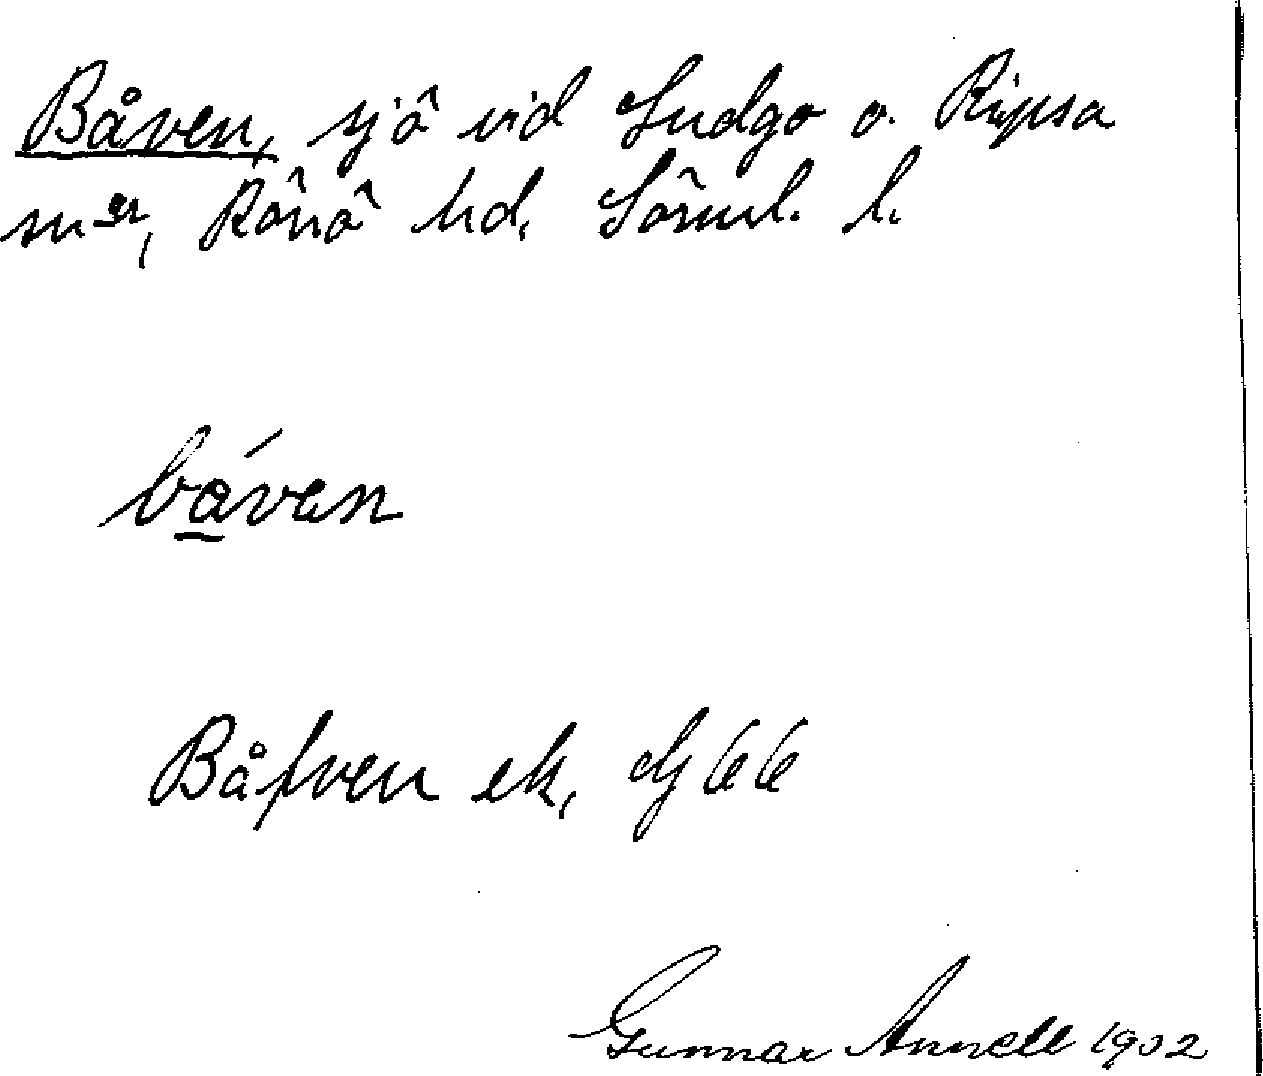 Båven, sjö vid Ludgo o. Ripsa
snr, Rönö hd, Sörml. l.
båven
Båfven ek, Gf 66
Gunnar Annell 1902